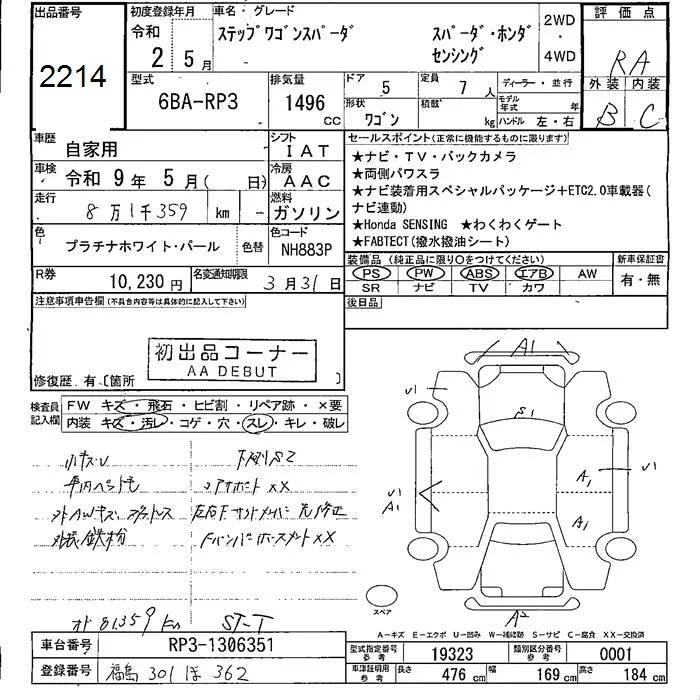 出品番号
2214
初度登録年月
令和
2 年 5 月
車名・グレード
ステップワゴンスパーダ
スパーダ・ホンダ
センシング
2WD
・
4WD
評価点
RA
外装 内装
B C
型式
6BA-RP3
排気量
1496
CC
ドア
5
定員
7 人
ディーラー・並行
形状
ワゴン
積載
kg
モデル年式
年
ハンドル 左・右
車歴
自家用
シフト
IAT
車検
令和 9 年 5 月( 日)
冷房
AAC
走行
8万1千359 km
燃料
ガソリン
色
プラチナホワイト・パール
色替
色コード
NH883P
R券
10,230 円
名変通知期限
3 月 31 日
セールスポイント(正常に機能するものに限ります)
★ナビ・TV・バックカメラ
★両側パワスラ
★ナビ装着用スペシャルパッケージ+ETC2.0車載器(
ナビ連動)
★Honda SENSING ★わくわくゲート
★FABTECT(撥水撥油シート)
装備品 (純正品に限り○をつけてください)
PS PW ABS エアB AW
SR ナビ TV カワ
新車保証書
有・無
後日品
注意事項申告欄(不具合内容等は具体的に記入して下さい)
初出品コーナー
AA DEBUT
修復歴 有 (箇所
検査員
記入欄
FW キズ・飛石・ヒビ割・リペア跡・×要
内装 キズ・汚レ・コゲ・穴・スレ・キレ・破レ
小キズU
下廻りS2
コアサポートXX
外装鉄粉
オド 81359 km
ST-T
A1
U1
S1
A1
U1
U1
A1
A1
A2
スペア
A-キズ E-エクボ U-凹み W-補修跡 S-サビ C-腐食 XX-交換済
車台番号
RP3-1306351
登録番号
福島 301 ほ 362
型式指定番号
参考
19323
類別区分番号
参考
0001
車庫証明用
参考
長さ
476 cm
幅
169 cm
高さ
184 cm